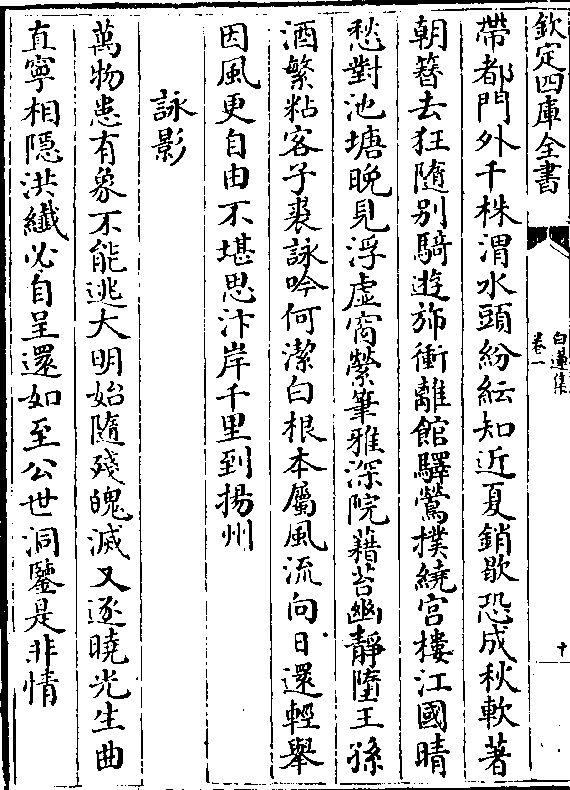 欽定四庫全書
白蓮集
卷一
十
帶都門外千株渭水頭紛紜知近夏銷歇恐成秋軟著
朝簪去狂隨别騎遊旆衝離館驛鶯撲繞宫樓江國晴
愁對池塘晚見浮虚窗縈筆雅深院藉苔幽靜墮王孫
酒繁粘客子裘詠吟何潔白根本屬風流向日還輕舉
因風更自由不堪思汴岸千里到揚州
詠影
萬物患有象不能逃大明始隨殘魄滅又逐曉光生曲
直寧相隱洪纖必自呈還如至公世洞鑒是非情